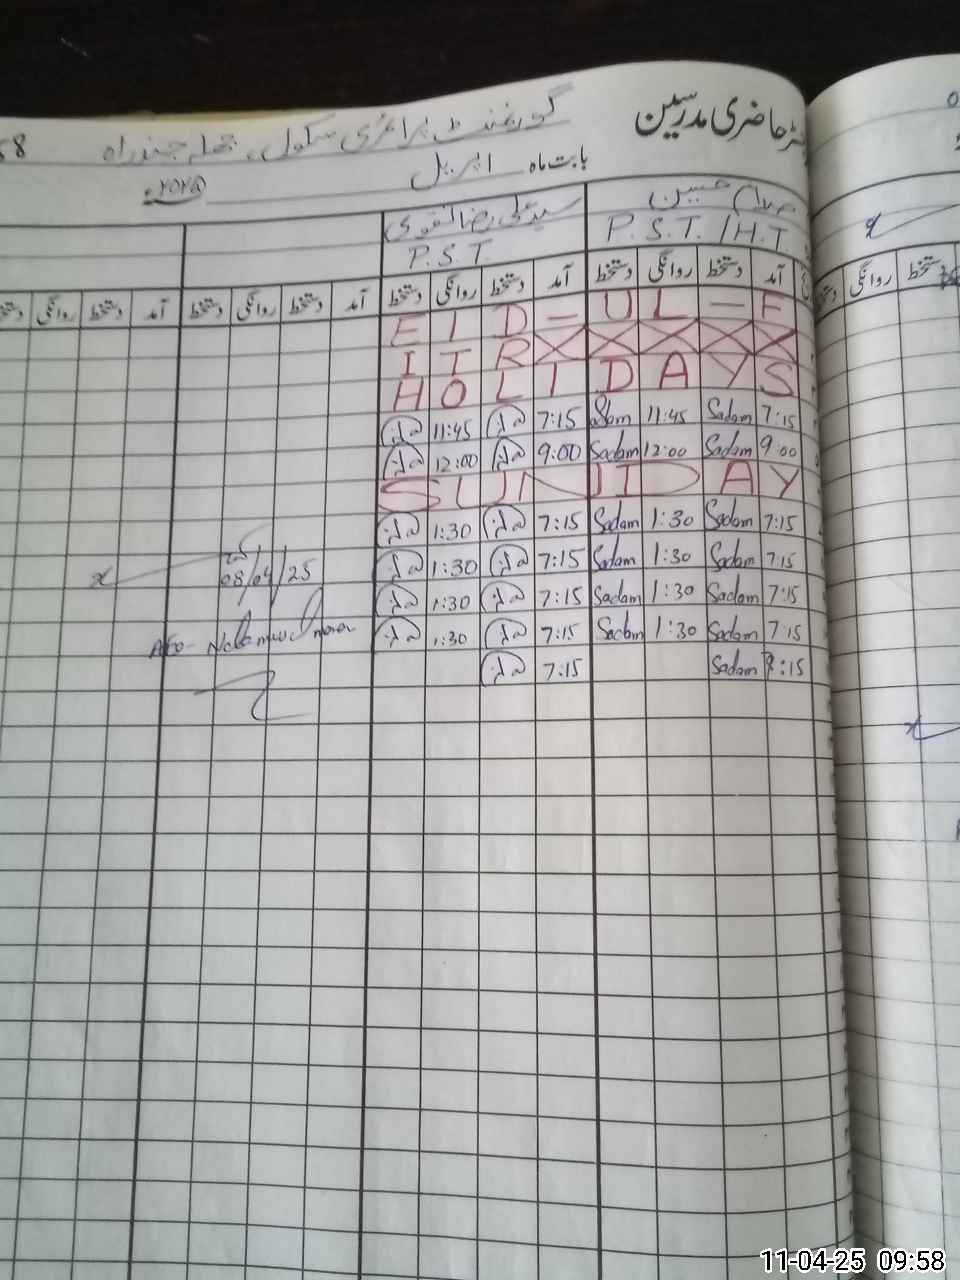 رجسٹر حاضری مدرسین
گورنمنٹ پرائمری سکول، محلہ جندراہ
58
بابت ماہ اپریل ۲۰۲۵ء
صدام حسین
سید علی رضا نقوی
P.S.T./H.T.
P.S.T.
آمد دستخط روانگی دستخط آمد دستخط روانگی دستخط آمد دستخط روانگی دستخط آمد دستخط روانگی دستخط
روانگی دستخط
EID-UL-F
ITRXXXXX
HOLIDAYS
11:45 7:15 Sadam 11:45 Sadam 7:15
12:00 9:00 Sadam 12:00 Sadam 9:00
SUNDAY
1:30 7:15 Sadam 1:30 Sadam 7:15
1:30 7:15 Sadam 1:30 Sadam 7:15
1:30 7:15 Sadam 1:30 Sadam 7:15
1:30 7:15 Sadam 1:30 Sadam 7:15
7:15 Sadam 7:15
08/04/25
11-04-25 09:58